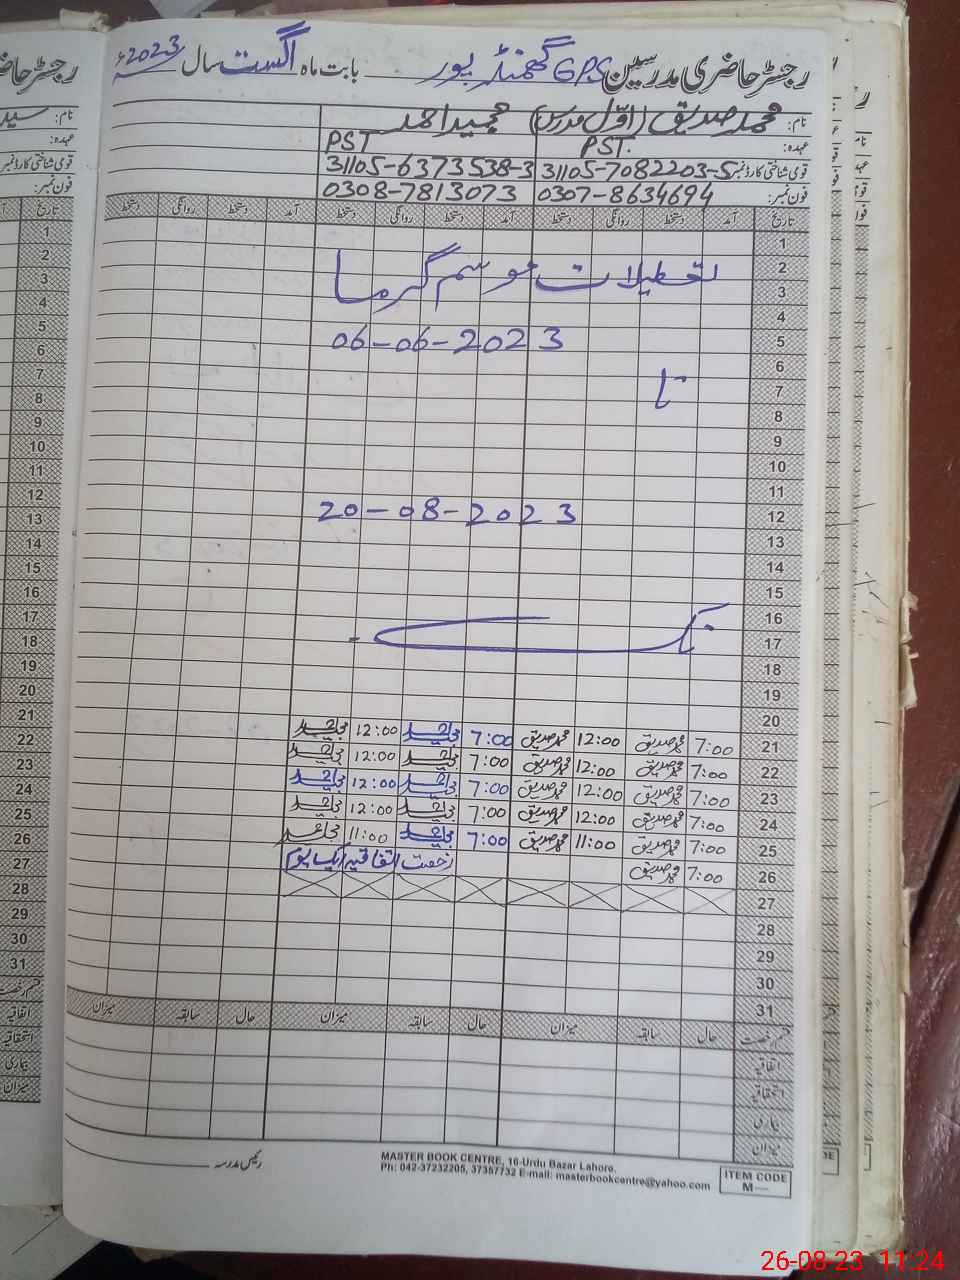 رجسٹر حاضری مدرسین GPS گھمنڈ پور بابت ماہ اگست سال 2023ء
نام: محمد صدیق (اوّل مدرس)
عہدہ: PST. PST
قومی شناختی کارڈ نمبر: 31105-7082203-5 31105-6373538-3
فون نمبر: 0307-8634694 0308-7813073
تاریخ آمد دستخط روانگی دستخط آمد دستخط روانگی دستخط آمد دستخط روانگی دستخط
1
2 تعطیلات موسم گرما
3
4
5 06-06-2023
6
7 تا
8
9
10
11
12 20-08-2023
13
14
15
16
17
18
19
20
21 7:00 محمد صدیق 12:00 محمد صدیق 7:00 12:00
22 7:00 محمد صدیق 12:00 محمد صدیق 7:00 12:00
23 7:00 محمد صدیق 12:00 محمد صدیق 7:00 12:00
24 7:00 محمد صدیق 12:00 محمد صدیق 7:00 12:00
25 7:00 محمد صدیق 11:00 محمد صدیق 7:00 11:00
26 7:00 محمد صدیق رخصت اتفاقیہ ایک یوم
27
28
29
30
31
قسم رخصت حال سابقہ میزان حال سابقہ میزان حال سابقہ میزان
اتفاقیہ
استحقاقیہ
بیماری
میزان
رئیس مدرسہ
MASTER BOOK CENTRE, 16-Urdu Bazar Lahore.
Ph: 042-37232205, 37357732 E-mail: masterbookcentre@yahoo.com
ITEM CODE
M—
26-08-23 11:24